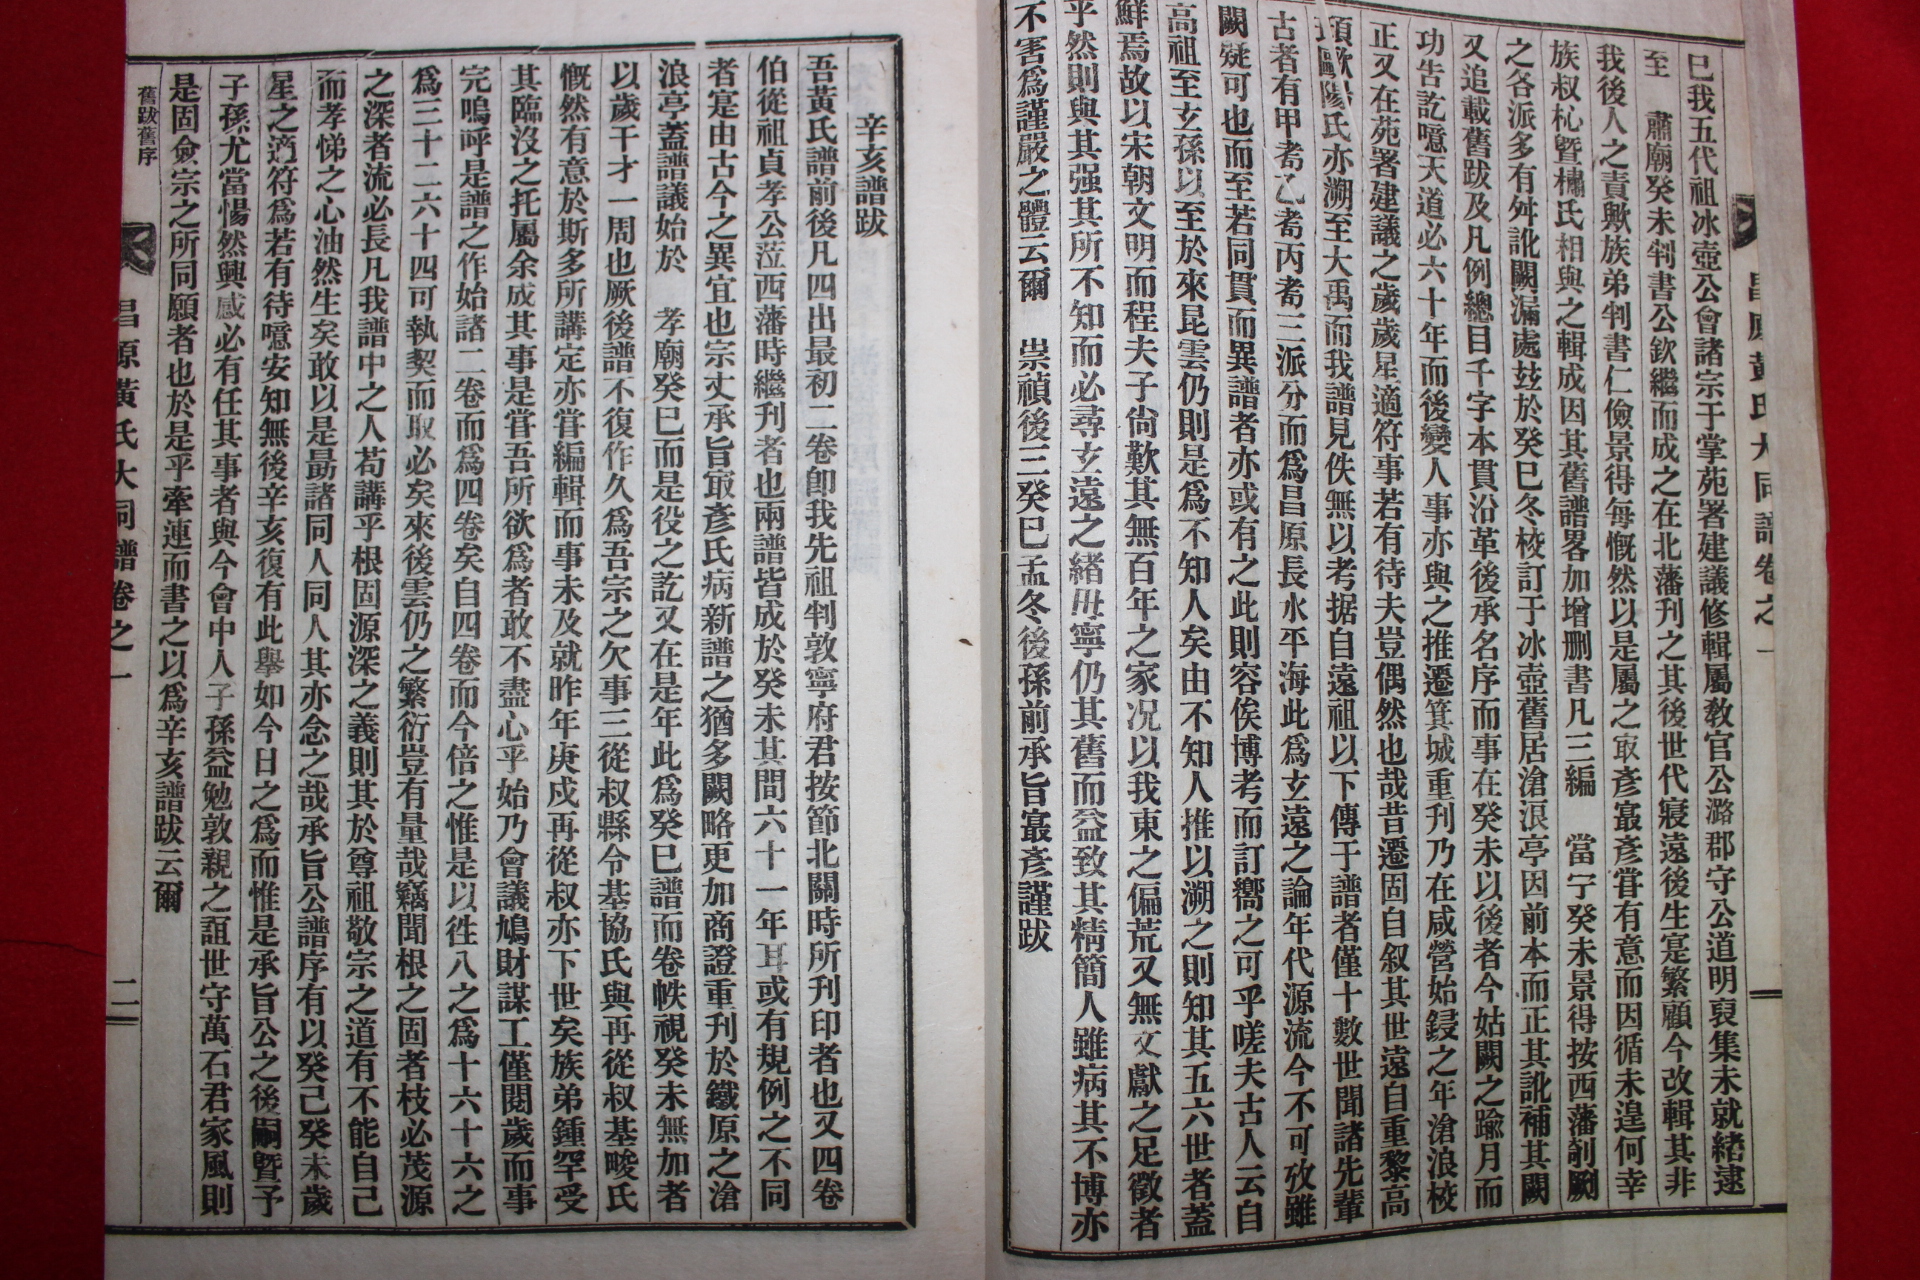 昌原黃氏大同譜卷之一
已我五代祖冰壺公會諸宗于掌苑署建議修輯屬教官公潞郡守公道明裒集未就緖逮
至　肅廟癸未判書公欽繼而成之在北藩刊之其後世代寢遠後生寔繁顧今改輯其非
我後人之責歟族弟判書仁儉景得每慨然以是屬之取彥㝡彥甞有意而因循未遑何幸
族叔杺曁橚氏相與之輯成因其舊譜畧加增删書凡三編　當宁癸未景得按西藩剞劂
之各派多有舛訛闕漏處玆於癸巳冬校訂于冰壺舊居滄浪亭因前本而正其訛補其闕
又追載舊跋及凡例總目千字本貫沿革後承名序而事在癸未以後者今姑闕之踰月而
功告訖噫天道必六十年而後變人事亦與之推遷箕城重刊乃在咸營始鋟之年滄浪校
正又在苑署建議之歲歲星適符事若有待夫豈偶然也哉昔遷固自叙其世遠自重黎高
頊歐陽氏亦溯至大禹而我譜見佚無以考据自遠祖以下傳于譜者僅十數世聞諸先輩
古者有甲者乙者丙者三派分而爲昌原長水平海此爲玄遠之論年代源流今不可攷雖
闕疑可也而至若同貫而異譜者亦或有之此則容俟博考而訂嚮之可乎嗟夫古人云自
高祖至玄孫以至於來昆雲仍則是爲不知人矣由不知人推以溯之則知其五六世者蓋
鮮焉故以宋朝文明而程夫子尙歎其無百年之家况以我東之偏荒又無文獻之足徵者
乎然則與其强其所不知而必尋玄遠之緖毋寧仍其舊而益致其精簡人雖病其不博亦
不害爲謹嚴之體云爾　崇禎後三癸巳孟冬後孫前承旨㝡彥謹跋
辛亥譜跋
吾黃氏譜前後凡四出最初二卷卽我先祖判敦寧府君按節北關時所刊印者也又四卷
伯從祖貞孝公莅西藩時繼刊者也兩譜皆成於癸未其間六十一年耳或有規例之不同
者寔由古今之異宜也宗丈承旨㝡彥氏病新譜之猶多闕略更加商證重刊於鐵原之滄
浪亭蓋譜議始於　孝廟癸巳而是役之訖又在是年此爲癸巳譜而卷帙視癸未無加者
以歲干才一周也厥後譜不復作久爲吾宗之欠事三從叔縣令基協氏與再從叔基畯氏
慨然有意於斯多所講定亦嘗編輯而事未及就昨年庚戌再從叔亦下世矣族弟鍾罕受
其臨沒之托屬余成其事是嘗吾所欲爲者敢不盡心乎始乃會議鳩財謀工僅閱歲而事
完嗚呼是譜之作始諸二卷而爲四卷矣自四卷而今倍之惟是以徃八之爲十六十六之
爲三十二六十四可執契而取必矣來後雲仍之繁衍豈有量哉竊聞根之固者枝必茂源
之深者流必長凡我譜中之人苟講乎根固源深之義則其於尊祖敬宗之道有不能自已
而孝悌之心油然生矣敢以是勗諸同人同人其亦念之哉承旨公譜序有以癸已癸未歲
星之適符爲若有待噫安知無後辛亥復有此擧如今日之爲而惟是承旨公之後嗣曁予
子孫尤當惕然興感必有任其事者與今會中人子孫益勉敦親之誼世守萬石君家風則
是固僉宗之所同願者也於是乎牽連而書之以爲辛亥譜跋云爾
舊跋舊序
昌原黃氏大同譜卷之一
二